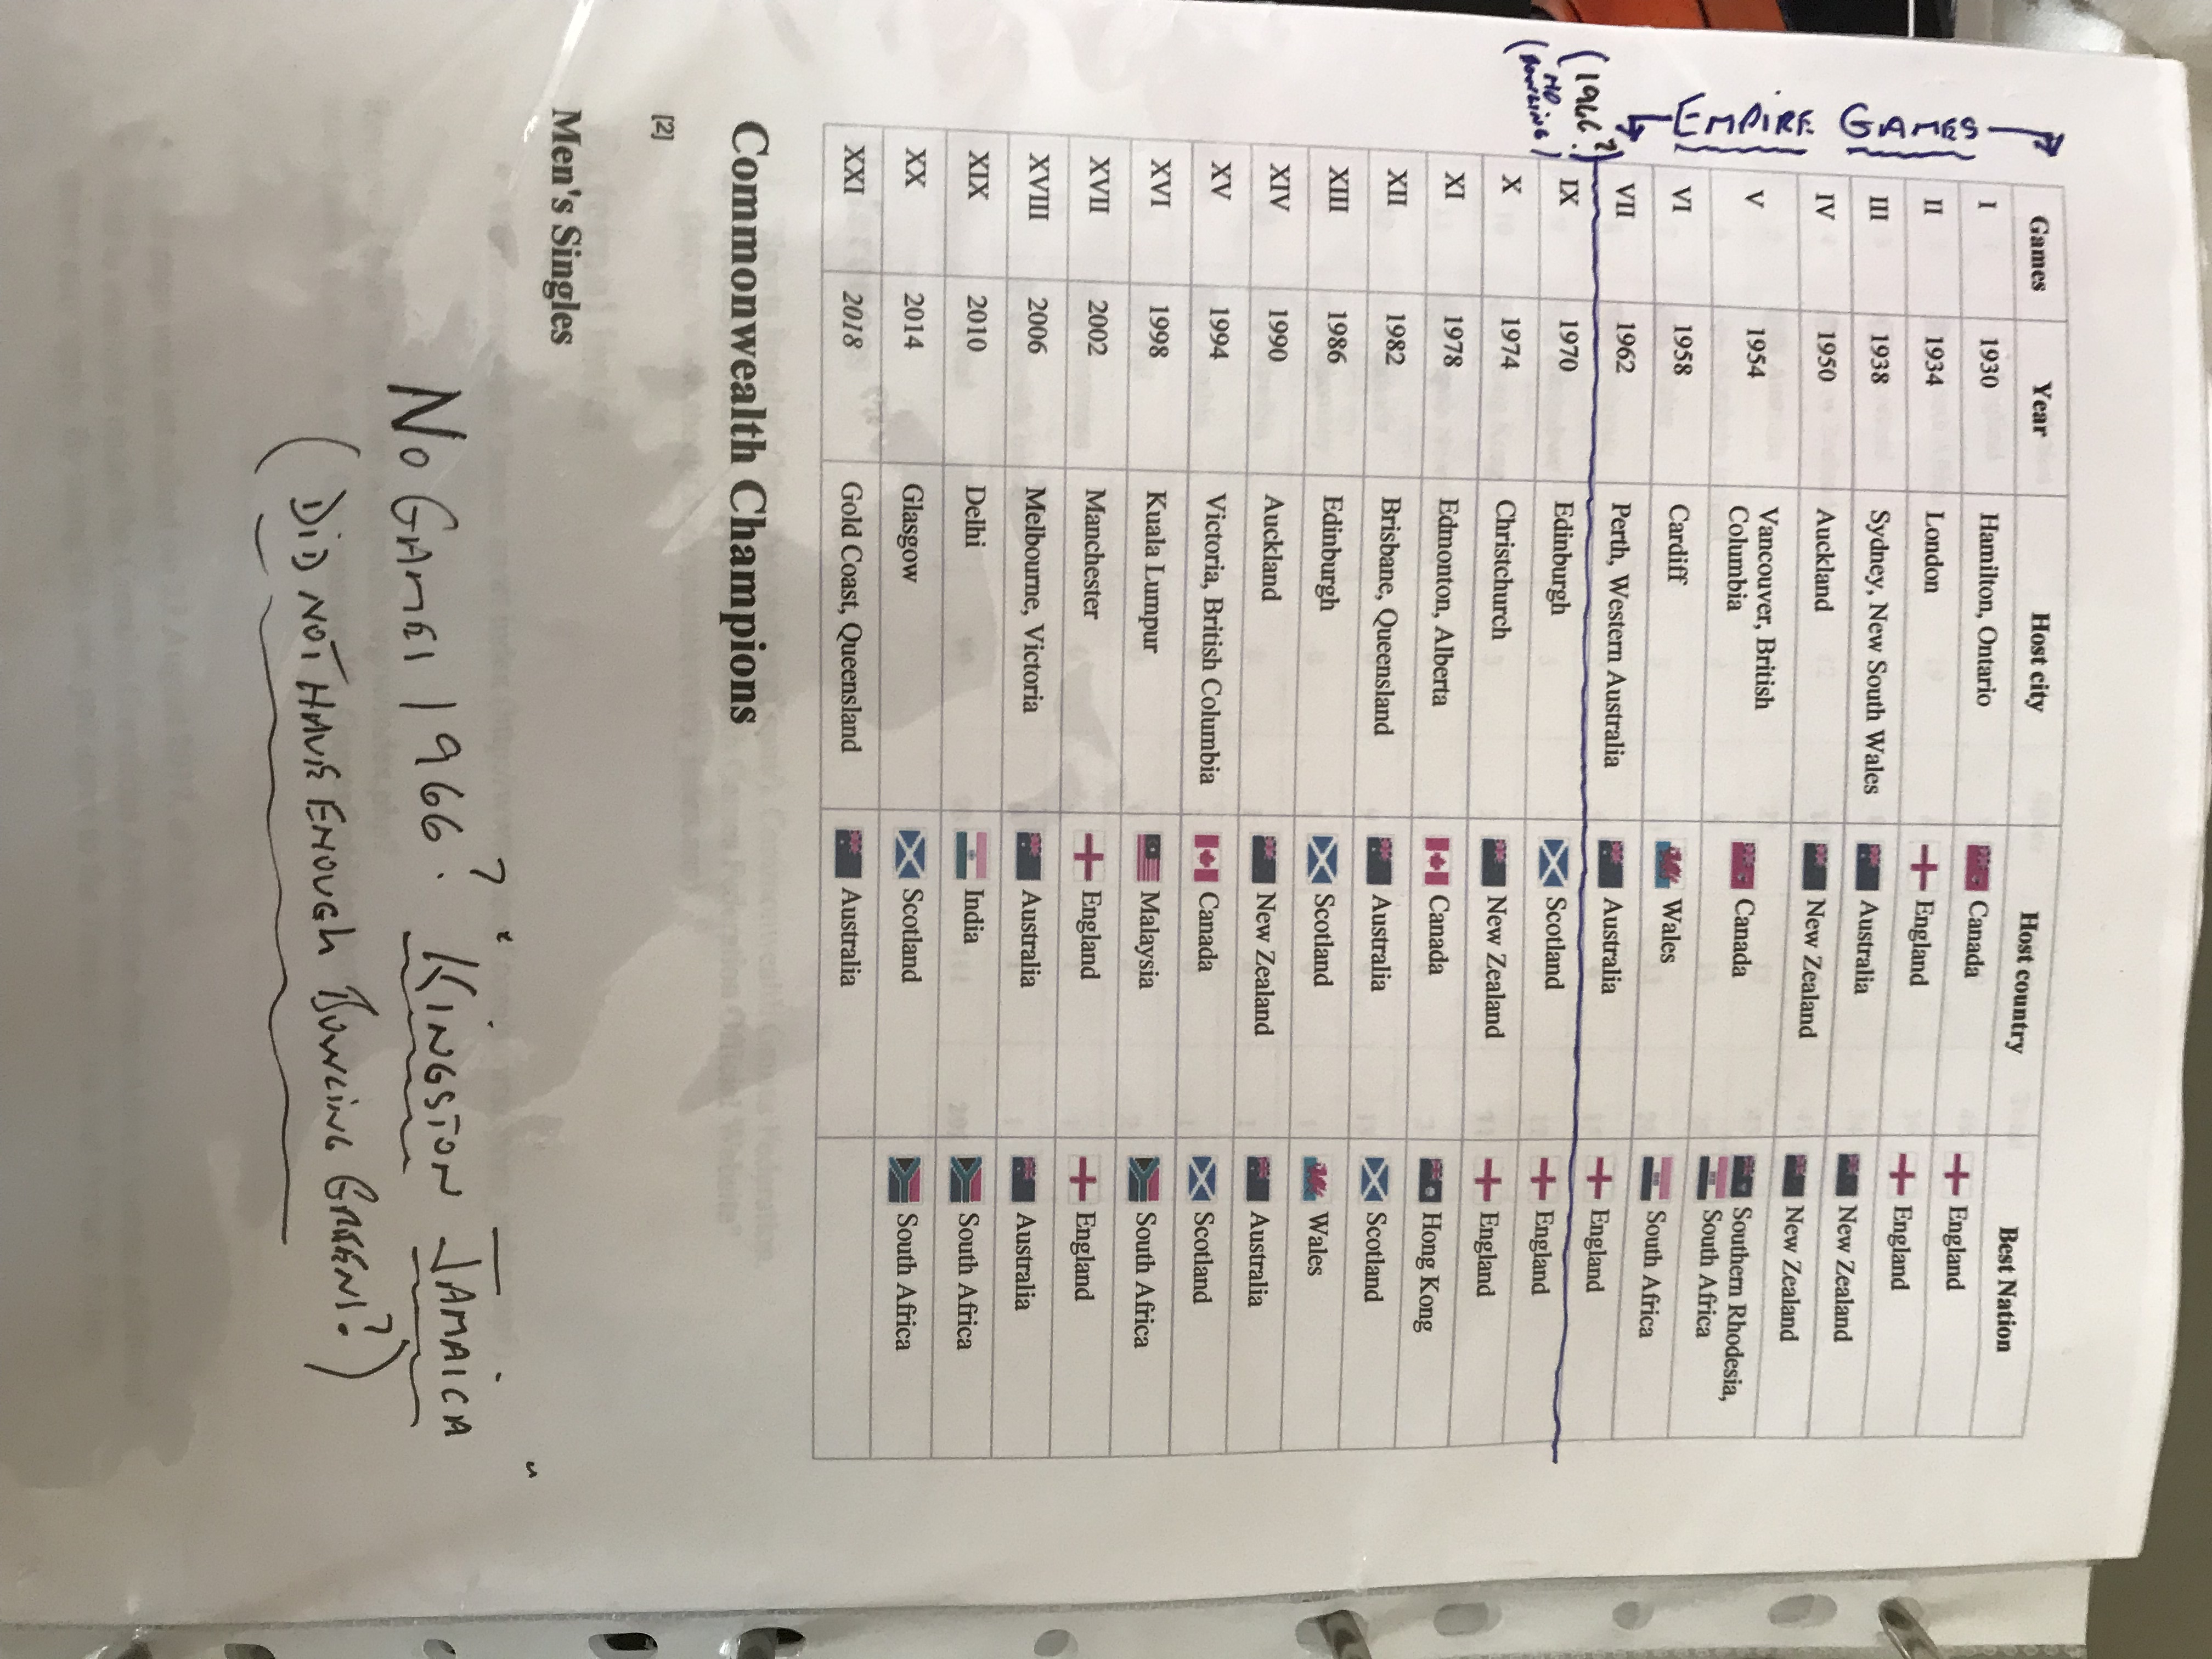 EMPIRE GAMES
(1966?)
(NO BOWLING)
Games Year Host city Host country Best Nation
I 1930 Hamilton, Ontario Canada England
II 1934 London England England
III 1938 Sydney, New South Wales Australia New Zealand
IV 1950 Auckland New Zealand New Zealand
V 1954 Vancouver, British Columbia Canada Southern Rhodesia, South Africa
VI 1958 Cardiff Wales South Africa
VII 1962 Perth, Western Australia Australia England
IX 1970 Edinburgh Scotland England
X 1974 Christchurch New Zealand England
XI 1978 Edmonton, Alberta Canada Hong Kong
XII 1982 Brisbane, Queensland Australia Scotland
XIII 1986 Edinburgh Scotland Wales
XIV 1990 Auckland New Zealand Australia
XV 1994 Victoria, British Columbia Canada Scotland
XVI 1998 Kuala Lumpur Malaysia South Africa
XVII 2002 Manchester England England
XVIII 2006 Melbourne, Victoria Australia Australia
XIX 2010 Delhi India South Africa
XX 2014 Glasgow Scotland South Africa
XXI 2018 Gold Coast, Queensland Australia
Commonwealth Champions
[2]
Men's Singles
NO GAMES 1966? KINGSTON JAMAICA
(DID NOT HAVE ENOUGH BOWLING GREENS?)